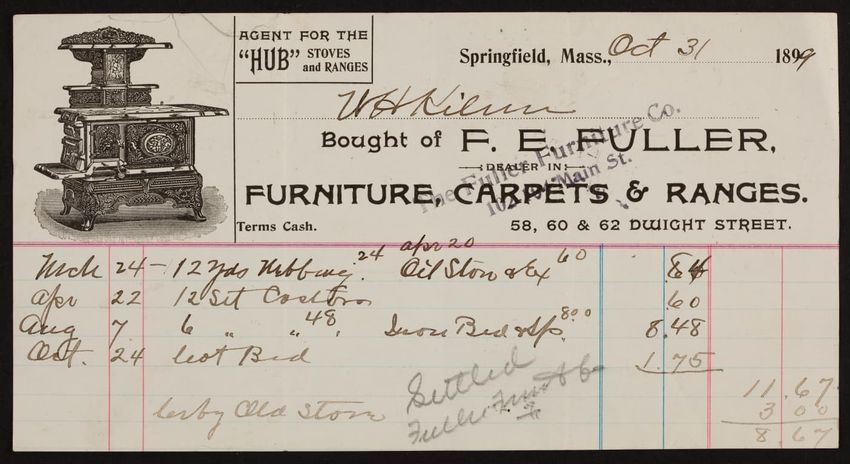 AGENT FOR THE
"HUB" STOVES and RANGES
Springfield, Mass., Oct 31 1899
W H
Bought of F. E. FULLER,
DEALER IN
The Fuller Furniture Co.
Main St.
FURNITURE, CARPETS & RANGES.
Terms Cash. 58, 60 & 62 DWIGHT STREET.
apr 20
Mch 24 - 12 yds Webbing 24 Oil Stove & Ex 60 84
Apr 22 12 Set Castors 60
Aug 7. 6 " " 48 Iron Bed & Sp. 8.00 8.48
Oct. 24 Cot Bed 1.75
11.67
Cr by Old Stove 3 00
8.67
Settled
Fuller Furn Co